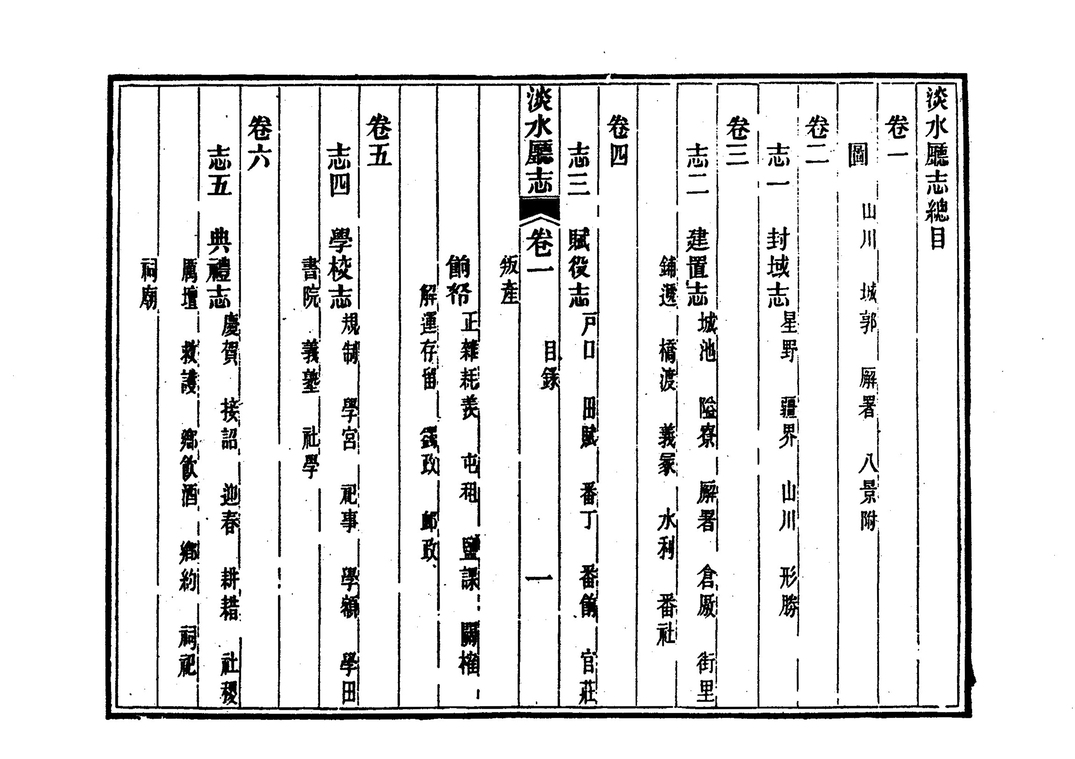 淡水廳志總目
卷一
圖 山川 城郭 廨署 八景附
卷二
志一 封域志 星野 疆界 山川 形勝
卷三
志二 建置志 城池 隘寮 廨署 倉廒 街里
鋪遞 橋渡 義冢 水利 番社
卷四
志三 賦役志 戸口 田賦 番丁 番餉 官莊
淡水廳志 卷一 目錄 一
叛產
餉帑 正雜耗羨 屯租 鹽課 關榷
解運存留 錢政 郵政
卷五
志四 學校志 規制 學宮 祀事 學額 學田
書院 義塾 社學
卷六
志五 典禮志 慶賀 接詔 迎春 耕耤 社稷
厲壇 救護 鄉飲酒 鄉約 祠祀
祠廟